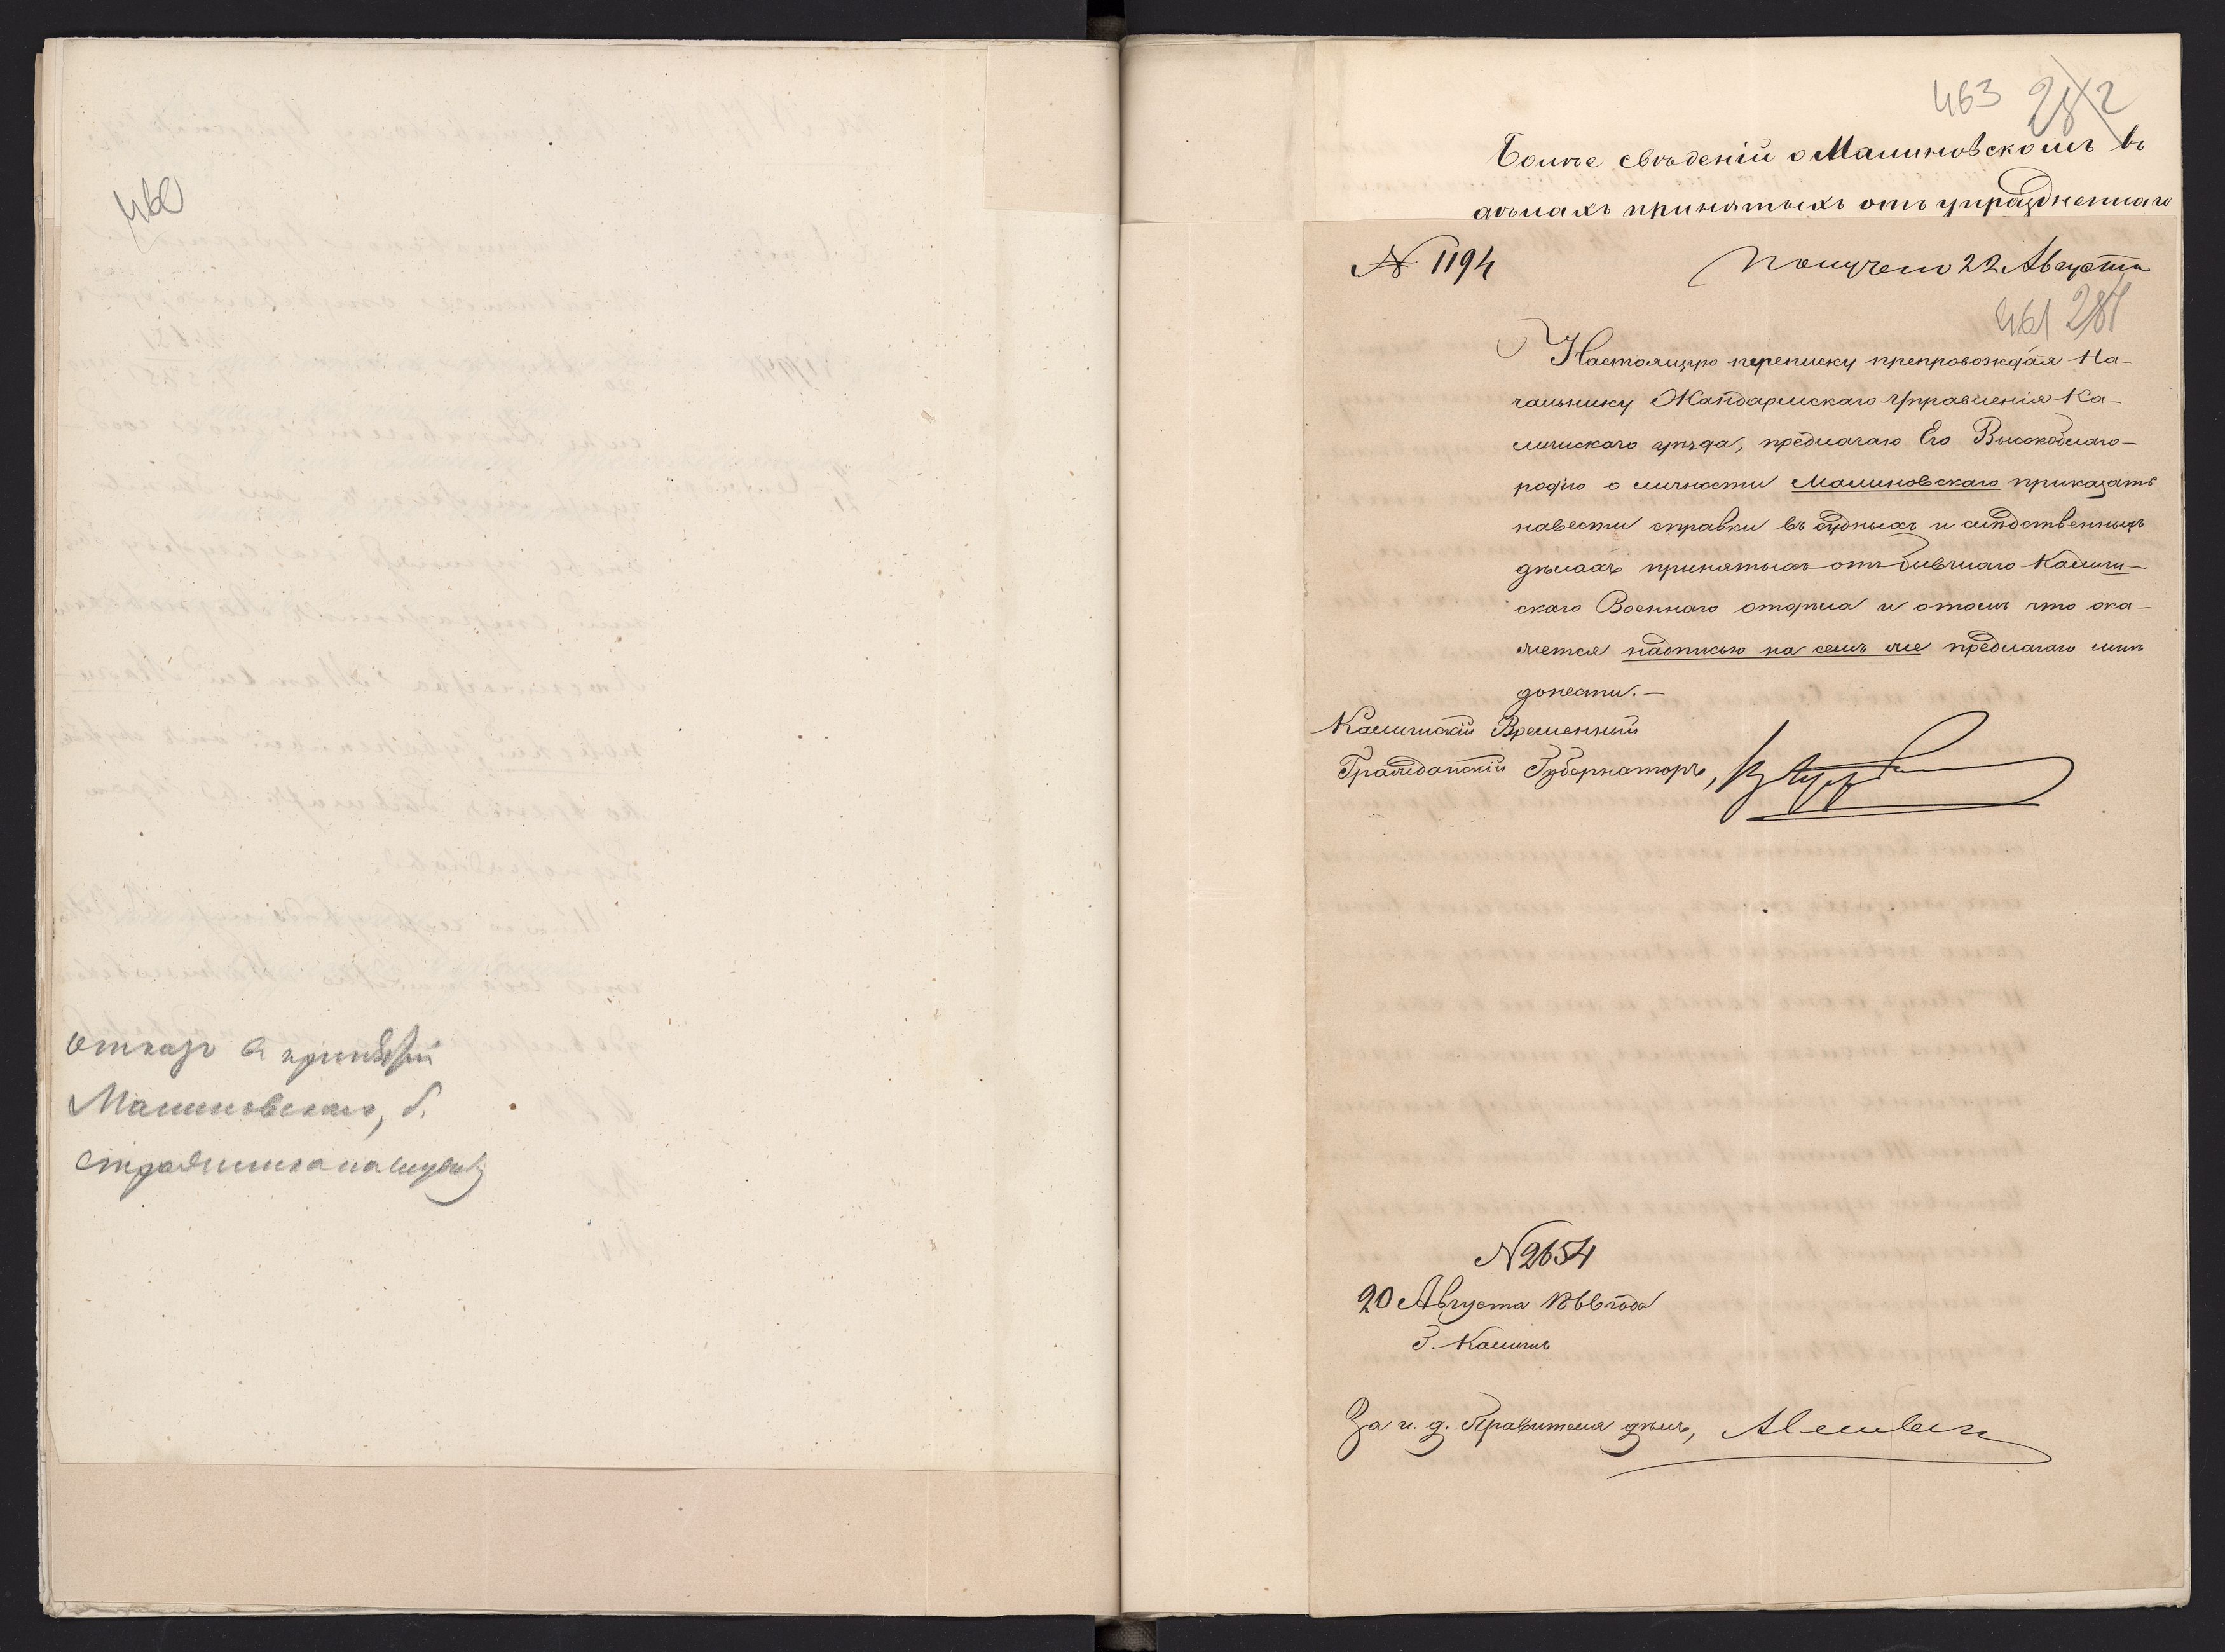 460
Отказъ въ принятіи
Малиновскаго, б.
стражника на службу
463 282
Болѣе свѣденій о Малиновскомъ въ
дѣлахъ принятыхъ отъ упраздненнаго
№ 1194
Получено 22 Августа
461 281
Настоящую переписку препровождая На-
чальнику Жандармскаго Управленія Ка-
лишскаго уѣзда, предлагаю Его Высокоблаго-
родію о личности Малиновскаго приказать
навести справки въ судныхъ и слѣдственныхъ
дѣлахъ принятыхъ отъ бывшаго Калиш-
скаго Военнаго отдѣла и о томъ что ока-
жется надписью на семъ же предлагаю мнѣ
донести.—
Калишскій Временный
Гражданскій Губернаторъ,
№ 2654
20 Августа 1866 года
Г. Калишъ
За и. д. Правителя дѣлъ,